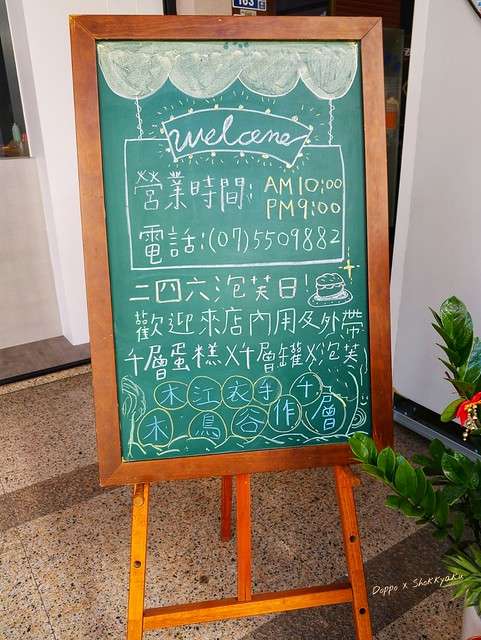 163
welcome
營業時間: AM10:00
PM9:00
電話:(07)5509882
二四六泡芙日!
歡迎來店內用及外帶
千層蛋糕X千層罐X泡芙
木江衣手千
木鳥谷作層
Doppo x Shokkyaku